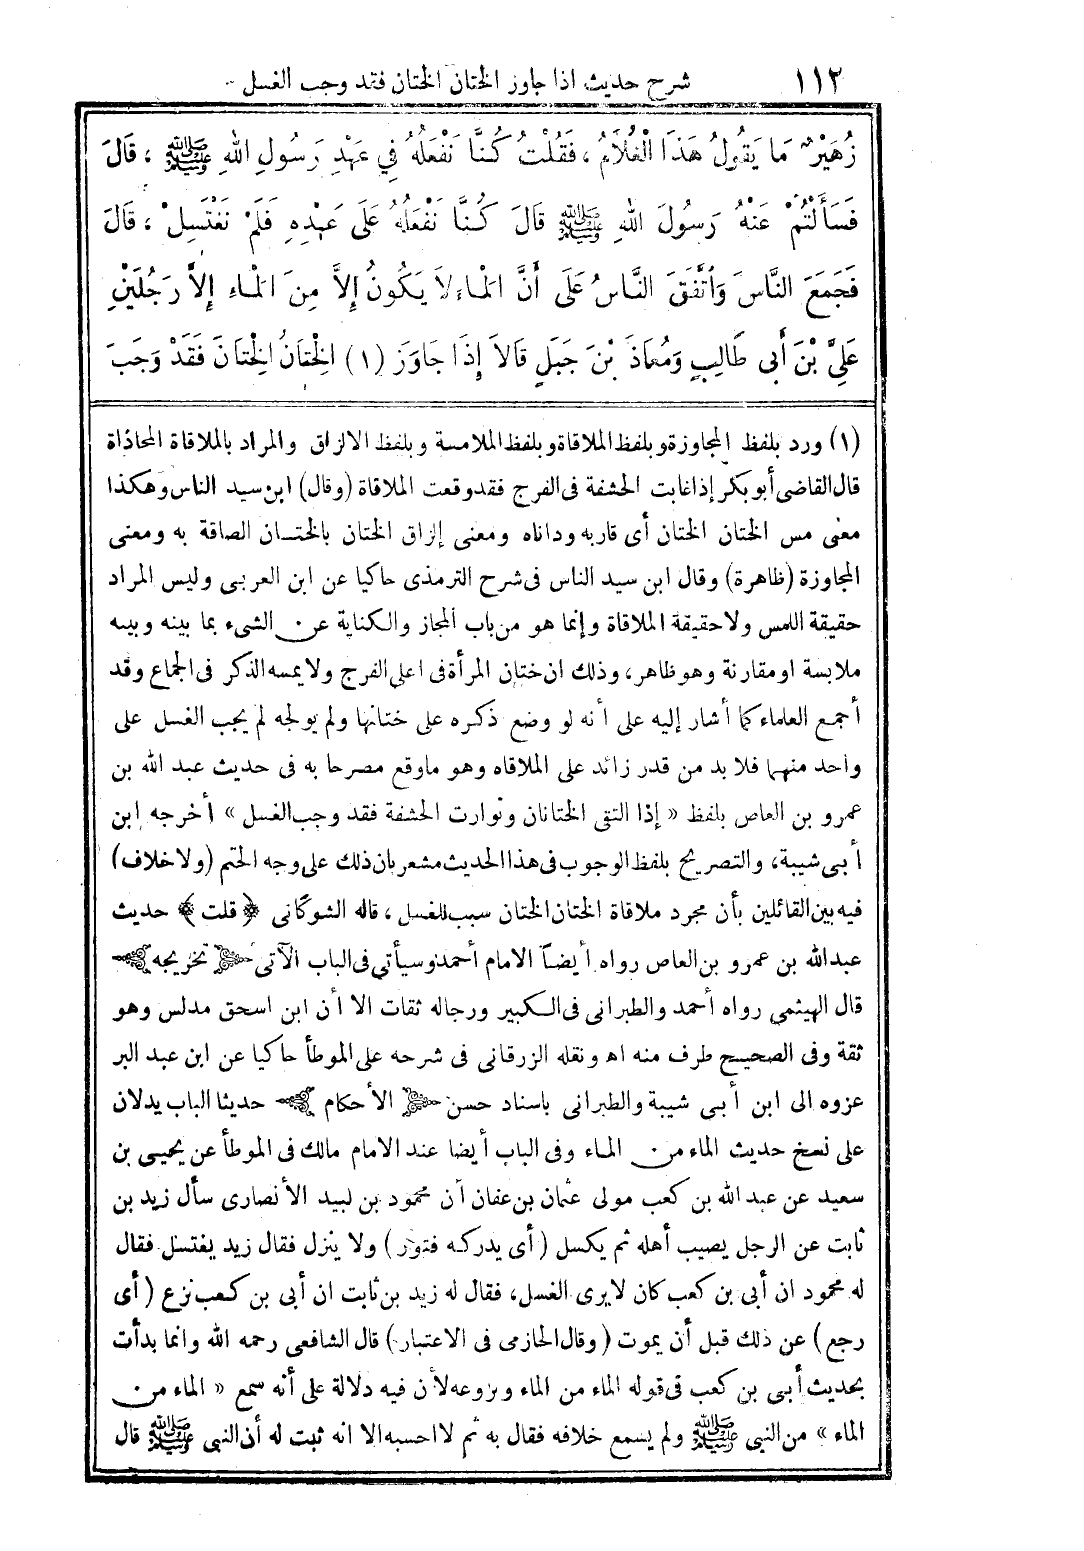 ١١٢ شرح حديث اذا جاوز الختان الختان فقد وجب الغسل
زُهَيْرٌ مَا يَقُولُ هَذَا الْغُلَامُ ، فَقُلْتُ كُنَّا نَفْعَلُهُ فِي عَهْدِ رَسُولِ اللهِ ﷺ ، قَالَ
فَسَأَلْتُمْ عَنْهُ رَسُولَ اللهِ ﷺ قَالَ كُنَّا نَفْعَلُهُ عَلَى عَهْدِهِ فَلَمْ نَغْتَسِلْ ، قَالَ
فَجَمَعَ النَّاسَ وَاُتَّفَقَ النَّاسُ عَلَى أَنَّ الْمَاءَ لاَ يَكُونُ إِلاَّ مِنَ الْمَاءِ إِلاَّ رَجُلَيْنِ
عَلِيَّ بْنَ أَبِي طَالِبٍ وَمُعَاذَ بْنَ جَبَلٍ قَالاَ إِذَا جَاوَزَ (١) الْخِتَانُ الْخِتَانَ فَقَدْ وَجَبَ
(١) ورد بلفظ المجاوزة وبلفظ الملاقاة وبلفظ الملامسة وبلفظ الالزاق والمراد بالملاقاة المحاذاة
قال القاضى أبو بكر إذا غابت الحشفة فى الفرج فقد وقعت الملاقاة (وقال) ابن سيد الناس وهكذا
معنى مس الختان الختان أى قاربه وداناه ومعنى إلزاق الختان بالختان الصاقة به ومعنى
المجاوزة (ظاهرة) وقال ابن سيد الناس فى شرح الترمذى حاكيا عن ابن العربى وليس المراد
حقيقة اللمس ولا حقيقة الملاقاة وإنما هو من باب المجاز والكناية عن الشىء بما بينه وبينه
ملابسة او مقارنة وهو ظاهر، وذلك ان ختان المرأة فى اعلى الفرج ولا يمسه الذكر فى الجماع وقد
أجمع العلماء كما أشار إليه على أنه لو وضع ذكره على ختانها ولم يولجه لم يجب الغسل على
واحد منهما فلا بد من قدر زائد على الملاقاه وهو ماوقع مصرحا به فى حديث عبد الله بن
عمرو بن العاص بلفظ « إذا التقى الختانان وتوارت الحشفة فقد وجب الغسل » أخرجه ابن
أبى شيبة، والتصريح بلفظ الوجوب فى هذا الحديث مشعر بان ذلك على وجه الحتم (ولا خلاف)
فيه بين القائلين بأن مجرد ملاقاة الختان الختان سبب للغسل ، قاله الشوكانى ﴿ قلت ﴾ حديث
عبد الله بن عمرو بن العاص رواه أيضاً الامام أحمد وسيأتى فى الباب الآتى ﴿ تخريجه ﴾
قال الهيثمى رواه أحمد والطبرانى فى الكبير ورجاله ثقات الا أن ابن اسحق مدلس وهو
ثقة وفى الصحيح طرف منه اه ونقله الزرقانى فى شرحه على الموطأ حاكيا عن ابن عبد البر
عزوه الى ابن أبى شيبة والطبرانى باسناد حسن ﴿ الأحكام ﴾ حديثا الباب يدلان
على نسخ حديث الماء من الماء وفى الباب أيضا عند الامام مالك فى الموطأ عن يحيى بن
سعيد عن عبد الله بن كعب مولى عثمان بن عفان أن محمود بن لبيد الأنصارى سأل زيد بن
ثابت عن الرجل يصيب أهله ثم يكسل ( أى يدركه فتور ) ولا ينزل فقال زيد يغتسل فقال
له محمود ان أبى بن كعب كان لا يرى الغسل، فقال له زيد بن ثابت ان أبى بن كعب نزع ( أى
رجع ) عن ذلك قبل أن يموت ( وقال الحازمى فى الاعتبار ) قال الشافعى رحمه الله وانما بدأت
بحديث أبى بن كعب فى قوله الماء من الماء ونزوعه لأن فيه دلالة على أنه سمع « الماء من
الماء » من النبى ﷺ ولم يسمع خلافه فقال به ثم لا احسبه الا انه ثبت له أن النبى ﷺ قال